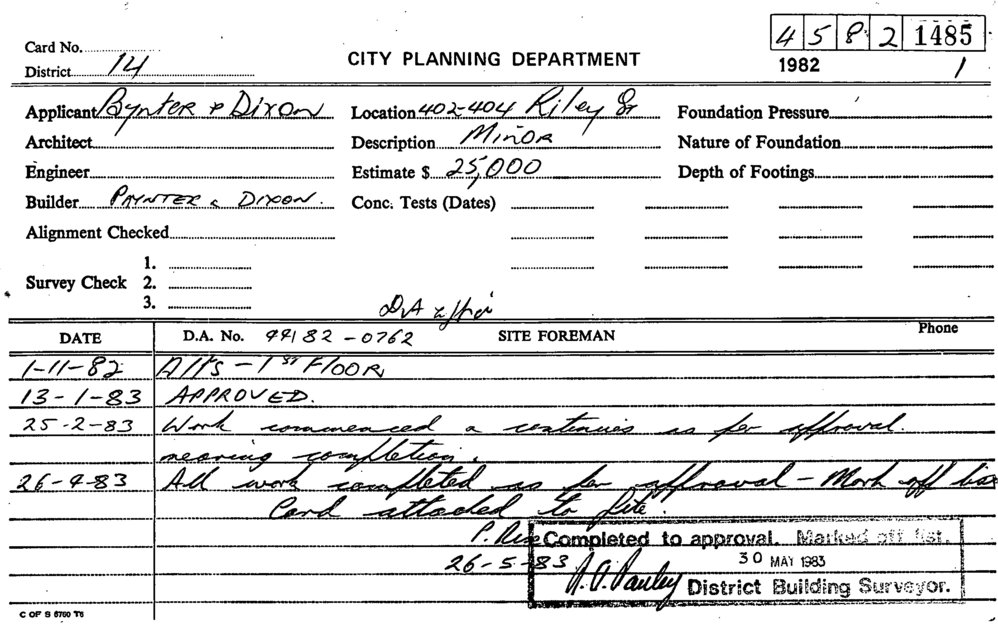 4 5 8 2 1485
Card No.
CITY PLANNING DEPARTMENT
1982 1
District 14
Applicant Paynter & Dixon Location 402-404 Riley St Foundation Pressure
Architect Description Minor Nature of Foundation
Engineer Estimate $ 25,000 Depth of Footings
Builder PAYNTER & DIXON. Conc. Tests (Dates)
Alignment Checked
1.
Survey Check 2.
3.
D.A
DATE D.A. No. 44 82-0762 SITE FOREMAN Phone
1-11-82 Alts - 1st FLOOR
13-1-83 APPROVED.
25-2-83 Work commenced & continues as per approval.
nearing completion.
26-4-83 All work completed as per approval - Mark off
Card attached to file.
P.
26-5-83
Completed to approval. Marked off list.
30 MAY 1983
District Building Surveyor.
C OF S 8760 T5